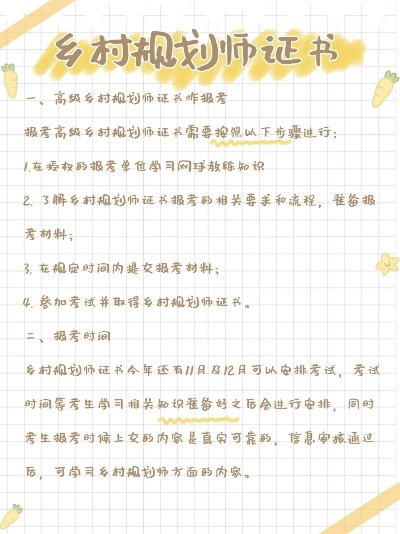 乡村规划师证书
一、高级乡村规划师证书咋报考
报考高级乡村规划师证书需要按照以下步骤进行：
1.在授权的报考单位学习网球教练知识
2. 了解乡村规划师证书报考的相关要求和流程，准备报
考材料；
3. 在规定时间内提交报考材料；
4. 参加考试并取得乡村规划师证书。
二、报考时间
乡村规划师证书今年还有11月及12月可以安排考试，考试
时间等考生学习相关知识准备好之后会进行安排，同时
考生报考时候上交的内容是真实可靠的，信息审核通过
后，可学习乡村规划师方面的内容。